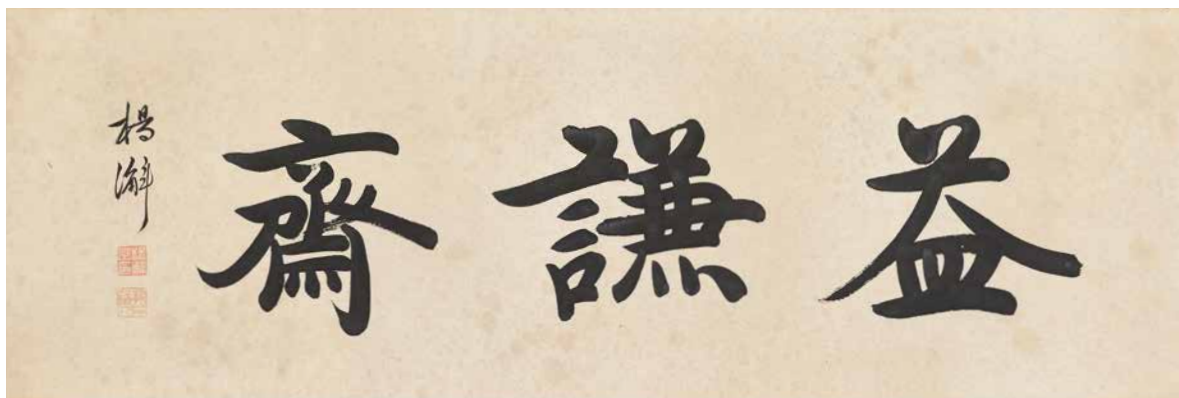 益謙齋
楊澥